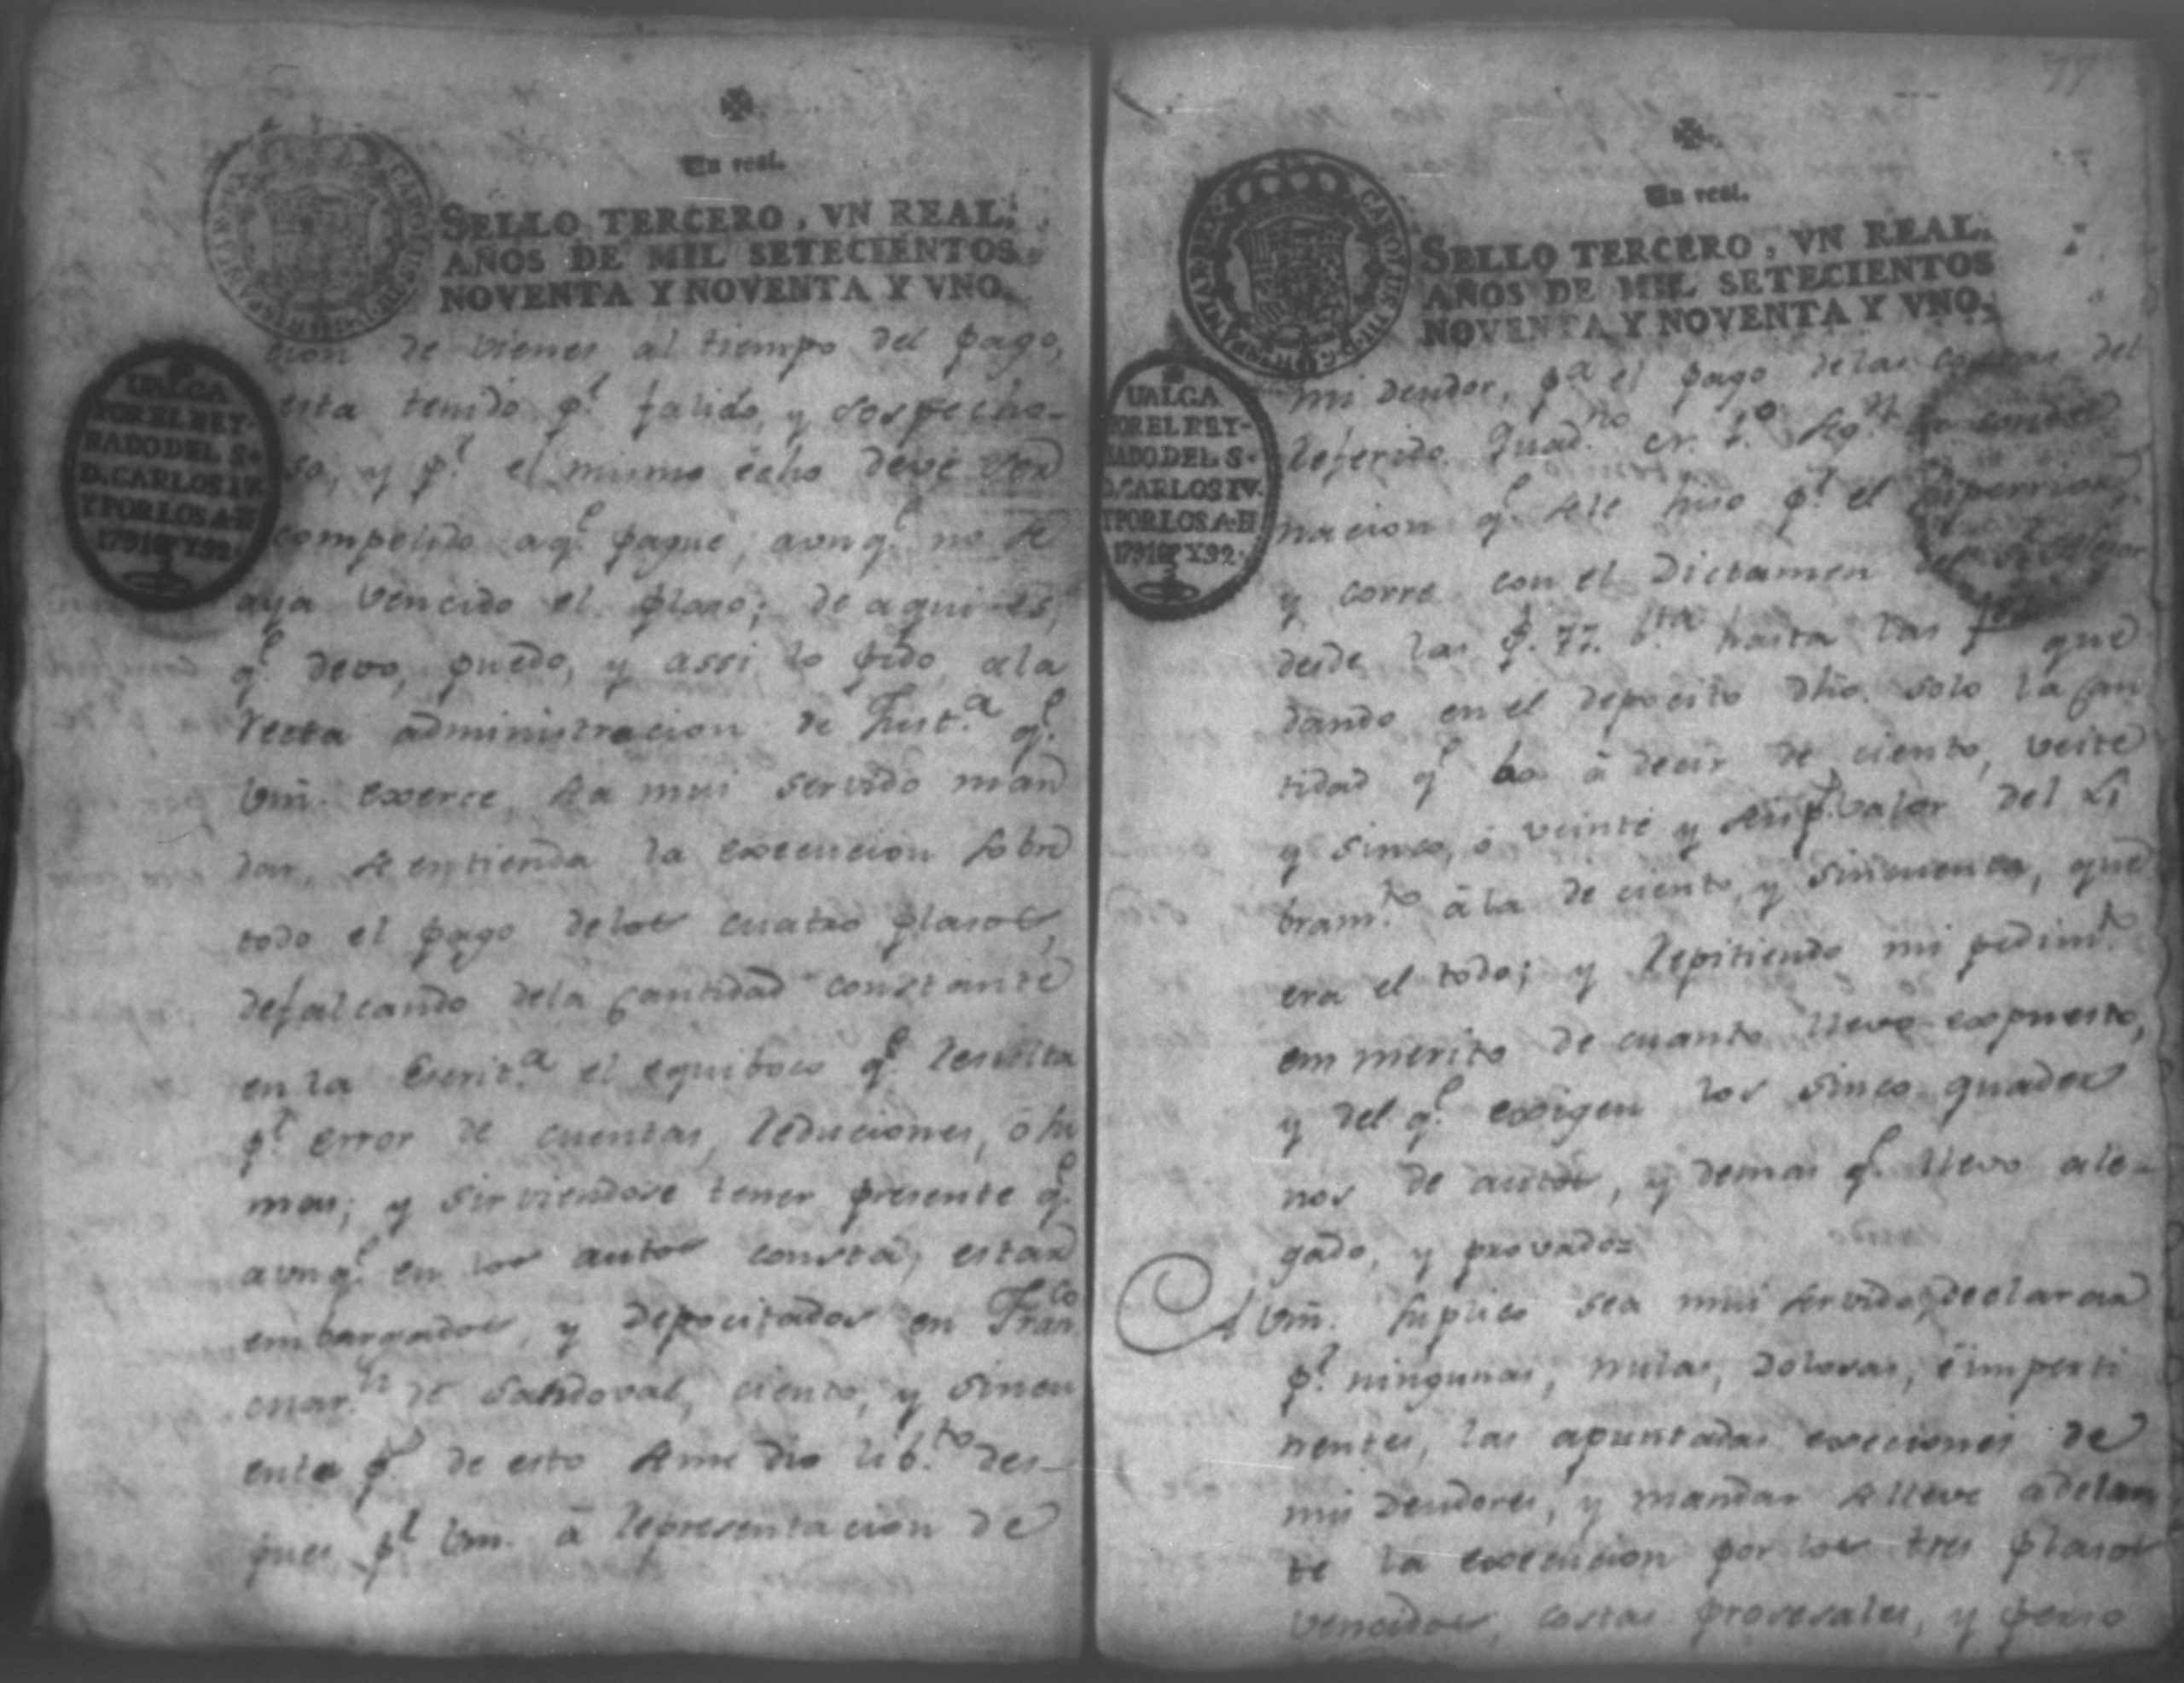 Un real.
SELLO TERCERO, VN REAL.
AÑOS DE MIL SETECIENTOS
NOVENTA Y NOVENTA Y VNO.
VALGA
POR EL REY-
NADO DEL S.
D. CARLOS IV.
Y POR LOS A. D
1791 Y 92.
cion de vienes al tiempo del pago,
esta tenido pr. falido, y sospecho-
so, y pr. el mismo echo deve ser
compelido a qe. pague, aunqe. no se
aya vencido el plaso; de aqui es,
qe. devo, puedo, y assi lo pido, a la
recta administracion de Justa. qe.
Vm. exerce, sea mui servido man
dar, se entienda la execucion sobre
todo el pago delos cuatro plasos,
defalcando dela cantidad constante
en la Escrita. el equiboco qe. resulta
pr. error de cuentas, reduciones, ó su
mas; y sirviendose tener presente qe.
aunqe. en los autos consta, estar
embargados, y depocitados en Franco.
de Sandoval, ciento, y sincu
enta p. de esto se me dio libto. des-
pues pr. Vm. á representacion de
77
Un real.
SELLO TERCERO, VN REAL.
AÑOS DE MIL SETECIENTOS
NOVENTA Y NOVENTA Y VNO.
VALGA
POR EL REY-
NADO DEL S.
D. CARLOS IV.
Y POR LOS A. D
1791 Y 92.
mi deudor, pa. el pago delas costas del
referido Quadno. cr. 1o.
nacion qe. se le hiso pr. el
y corre con el Dictamen
desde las f. 77. bta. hasta las f que
dando en el depocito dho. solo la can
tidad qe. ba á decir de ciento, veite
y sinco, ó veinte y seis p. valor del Li
bramto. á la de ciento, y sincuenta, que
era el todo; y repitiendo mi pedimto.
em merito de cuanto llevo expuesto,
y del qe. exigen los sinco quader
nos de autos, y demas qe. llevo ale-
gado, y provado=
A Vm. suplico sea mui servido, declarar
pr. ningunas, nulas, dolosas, é imperti
nentes, las apuntadas execiones de
mis deudores, y mandar se lleve adelan
te la execucion por los tres plasos
vencidos, costas prosesales, y perso